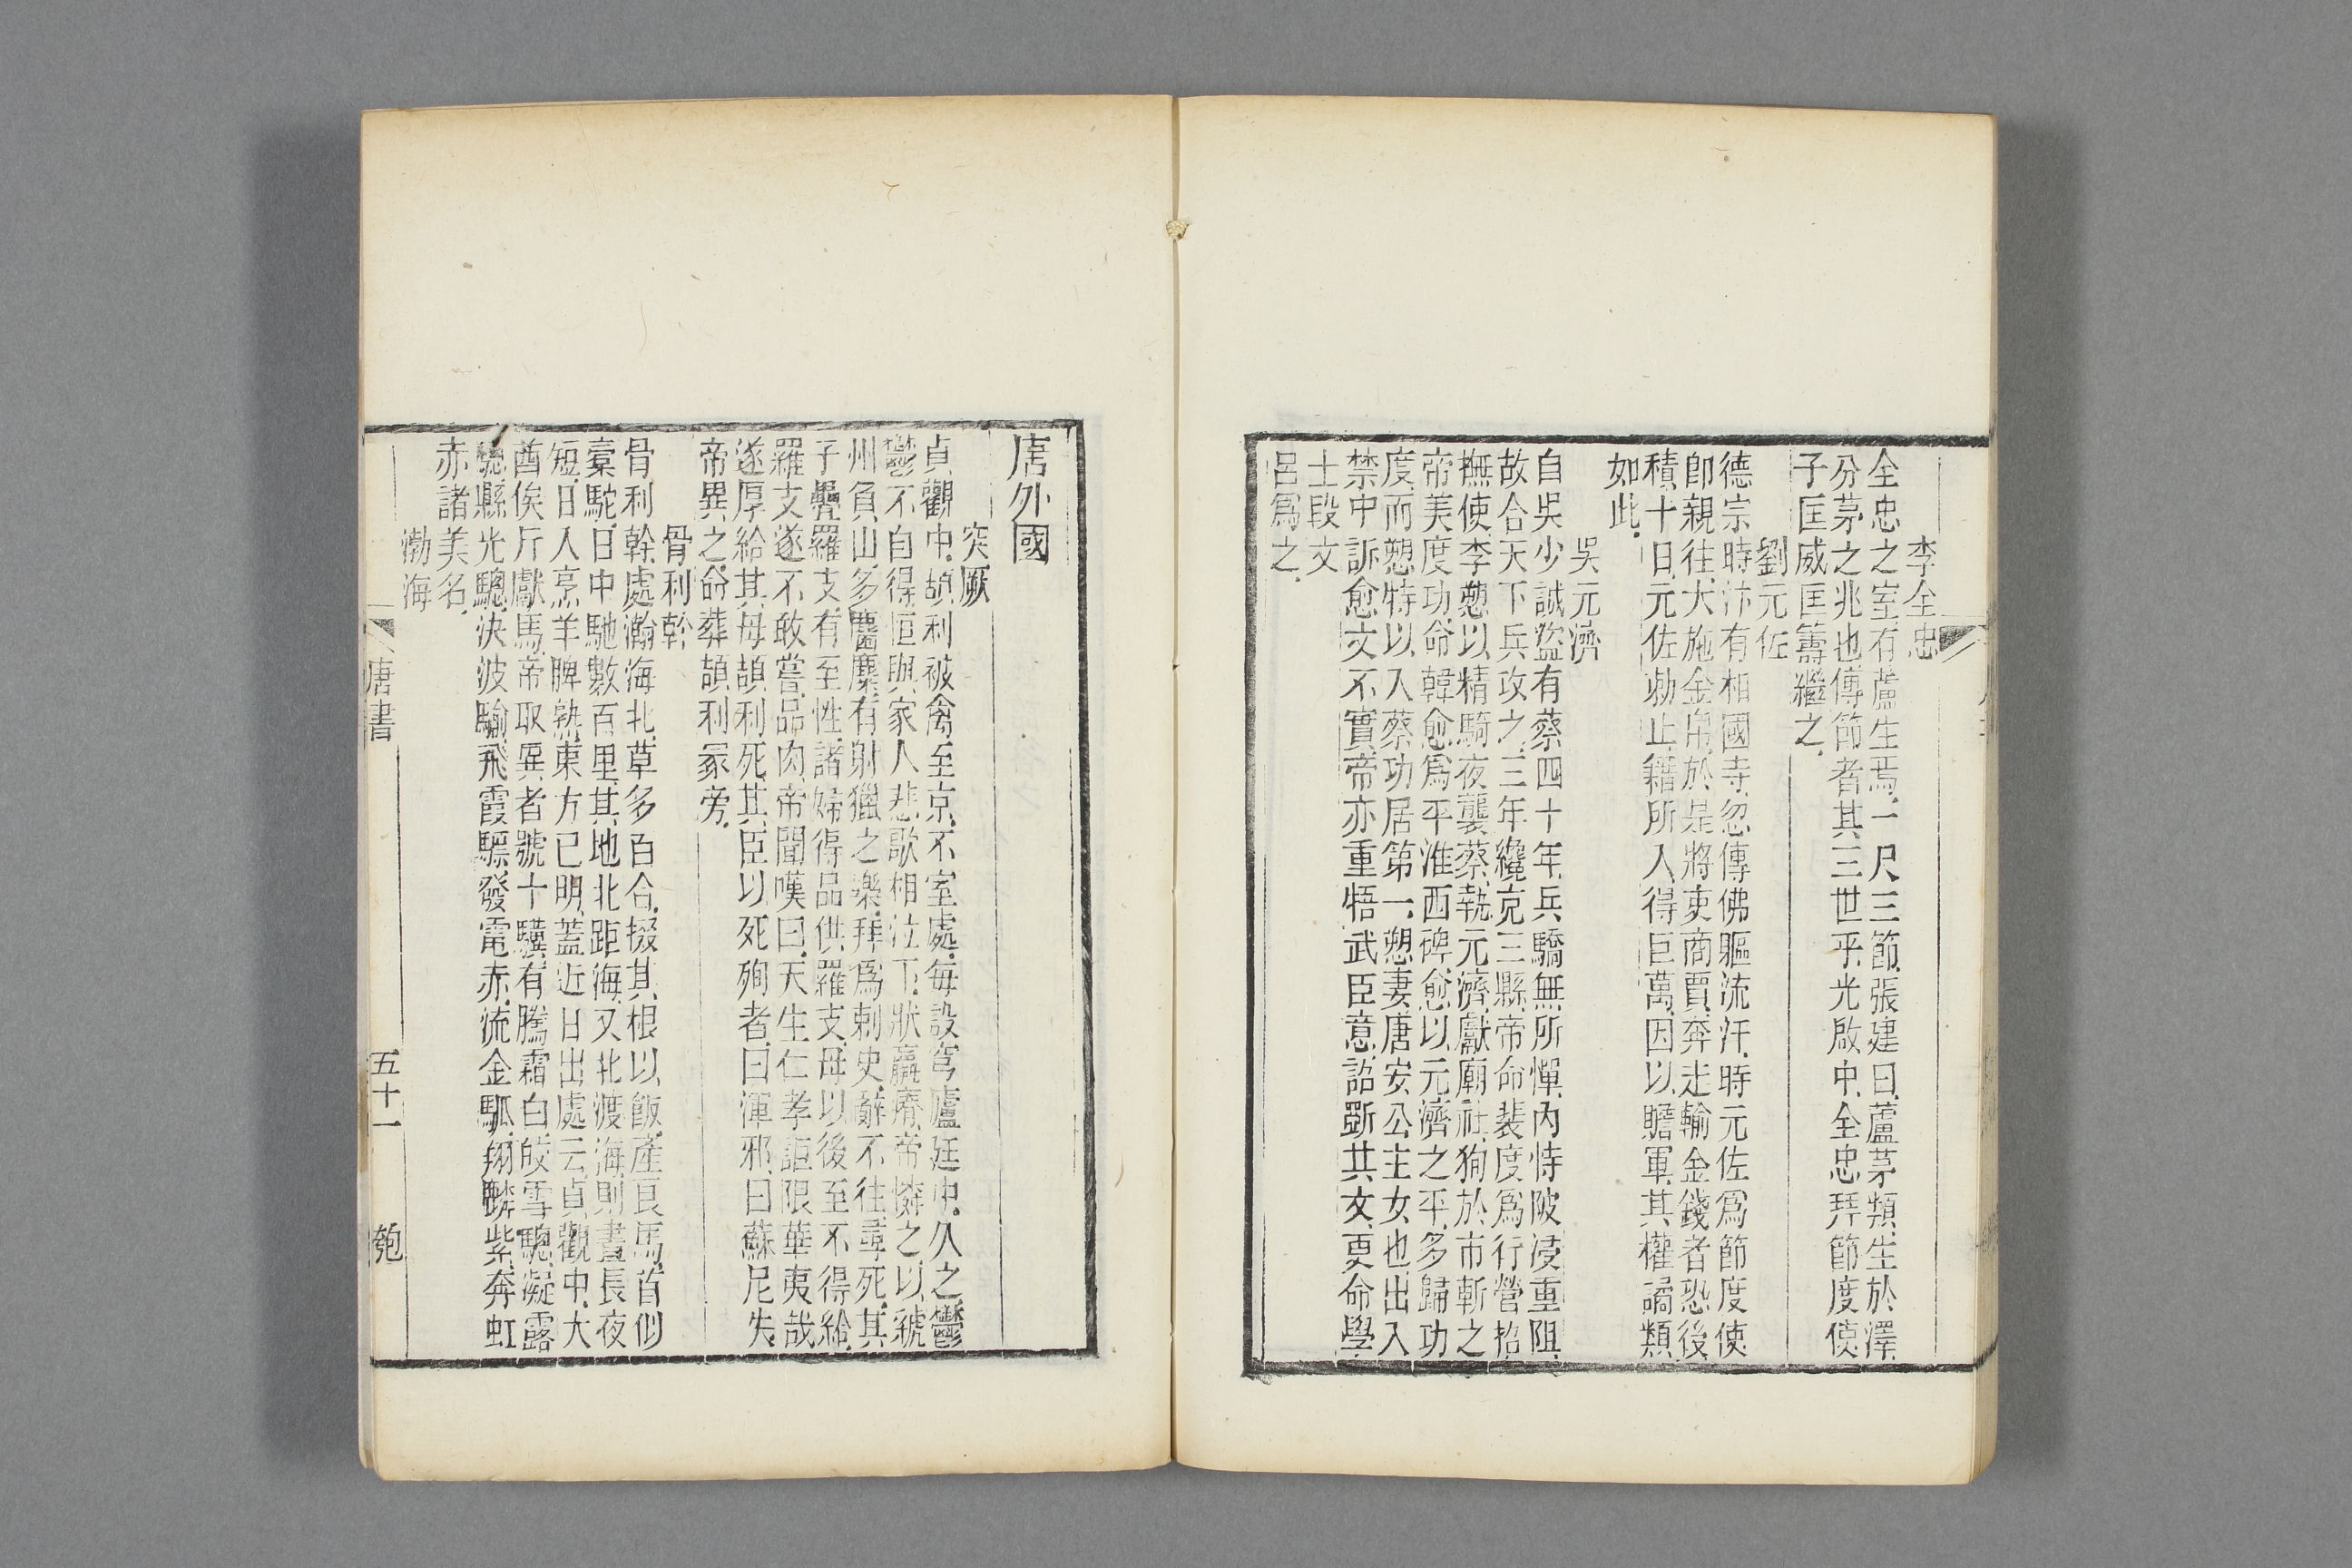 李全忠
全忠之室有蘆生焉一尺三節張建曰蘆茅類生於澤
分茅之兆也傳節者其三世乎光啟中全忠拜節度使
子匡威匡籌繼之
劉元佐
德宗時汴有相國寺忽傳佛軀流汗時元佐爲節度使
卽親往大施金帛於是將吏商賈奔走輸金錢者恐後
積十日元佐勅止籍所入得巨萬因以贍軍其權譎類
如此
吳元濟
自吳少誠盜有蔡四十年兵驕無所憚內恃陂浸重阻
故合天下兵攻之三年纔克三縣帝命裴度爲行營招
撫使李愬以精騎夜襲蔡執元濟獻廟社狥於市斬之
帝美度功命韓愈爲平淮西碑愈以元濟之平多歸功
度而愬特以入蔡功居第一愬妻唐安公主女也出入
禁中訴愈文不實帝亦重牾武臣意詔斵其文更命學
士段文
呂爲之
唐外國
突厥
貞觀中頡利被禽至京不室處每設穹廬廷中久之鬱
鬱不自得恒與家人悲歌相泣下狀羸瘠帝憐之以虢
州負山多麕麋有射獵之樂拜爲剌史辭不往尋死其
子疊羅支有至性諸婦得品供羅支母以後至不得給
羅支遂不敢嘗品肉帝聞嘆曰天生仁孝詎限華夷哉
遂厚給其母頡利死其臣以死殉者曰渾邪曰蘇尼失
帝異之命葬頡利冢旁
骨利幹
骨利幹處瀚海北草多百合掇其根以飯產良馬首似
橐駝日中馳數百里其地北距海又北渡海則晝長夜
短日入烹羊脾熟東方已明蓋近日出處云貞觀中大
酋俟斤獻馬帝取異者號十驥有騰霜白皎雪驄凝露
驄縣光驄決波騟飛霞驃發電赤流金騧翔麟紫奔虹
赤諸美名
渤海
唐書
五十一
匏